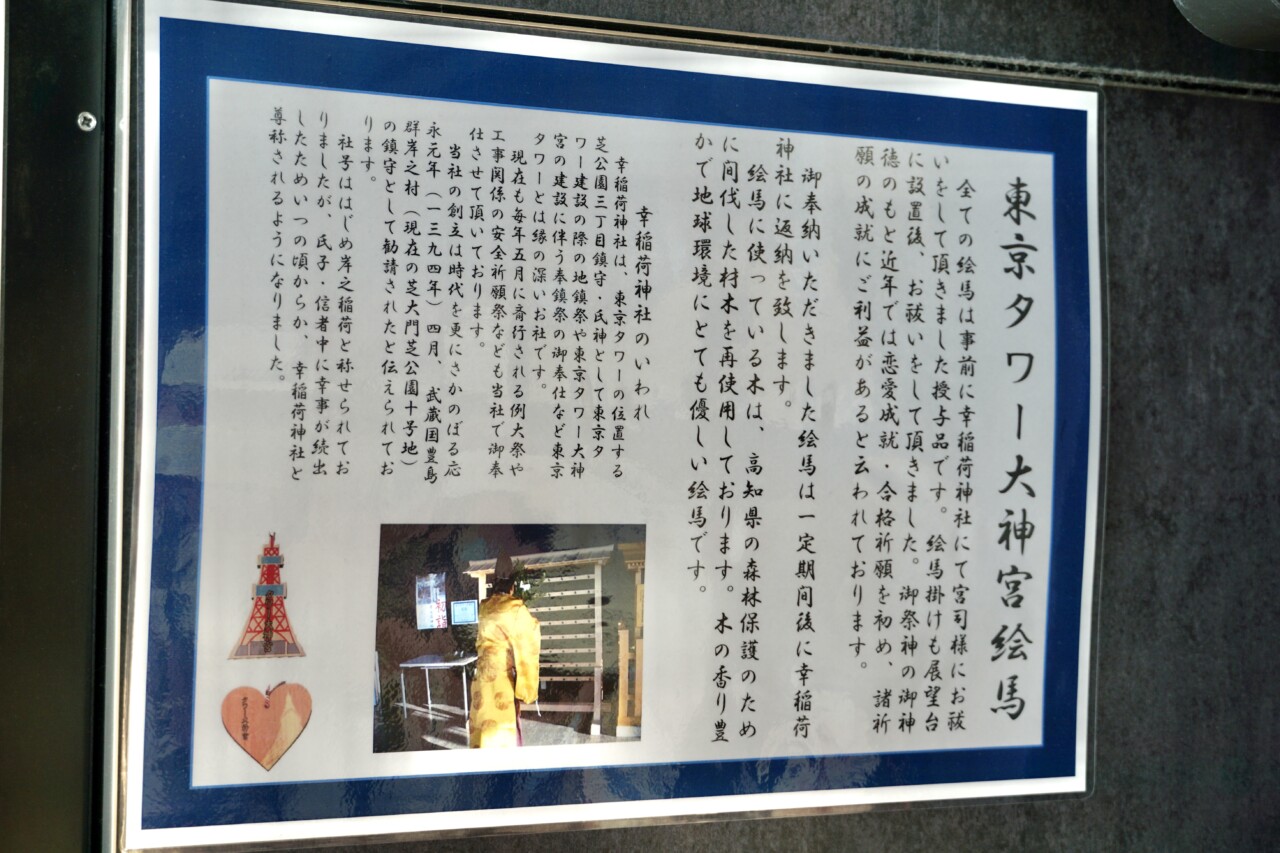 東京タワー大神宮絵馬
全ての絵馬は事前に幸稲荷神社にて宮司様にお祓
いをして頂きました授与品です。絵馬掛けも展望台
に設置後、お祓いをして頂きました。御祭神の御神
徳のもと近年では恋愛成就・合格祈願を初め、諸祈
願の成就にご利益があると云われております。
御奉納いただきました絵馬は一定期間後に幸稲荷
神社に返納を致します。
絵馬に使っている木は、高知県の森林保護のため
に間伐した材木を再使用しております。木の香り豊
かで地球環境にとても優しい絵馬です。
幸稲荷神社のいわれ
幸稲荷神社は、東京タワーの位置する
芝公園三丁目鎮守・氏神として東京タ
ワー建設の際の地鎮祭や東京タワー大神
宮の建設に伴う奉鎮祭の御奉仕など東京
タワーとは縁の深いお社です。
現在も毎年五月に斎行される例大祭や
工事関係の安全祈願祭なども当社で御奉
仕させて頂いております。
当社の創立は時代を更にさかのぼる応
永元年（一三九四年）四月、武蔵国豊島
群岸之村（現在の芝大門芝公園十号地）
の鎮守として勧請されたと伝えられてお
ります。
社号ははじめ岸之稲荷と称せられてお
りましたが、氏子・信者中に幸事が続出
したためいつの頃からか、幸稲荷神社と
尊称されるようになりました。
初詣